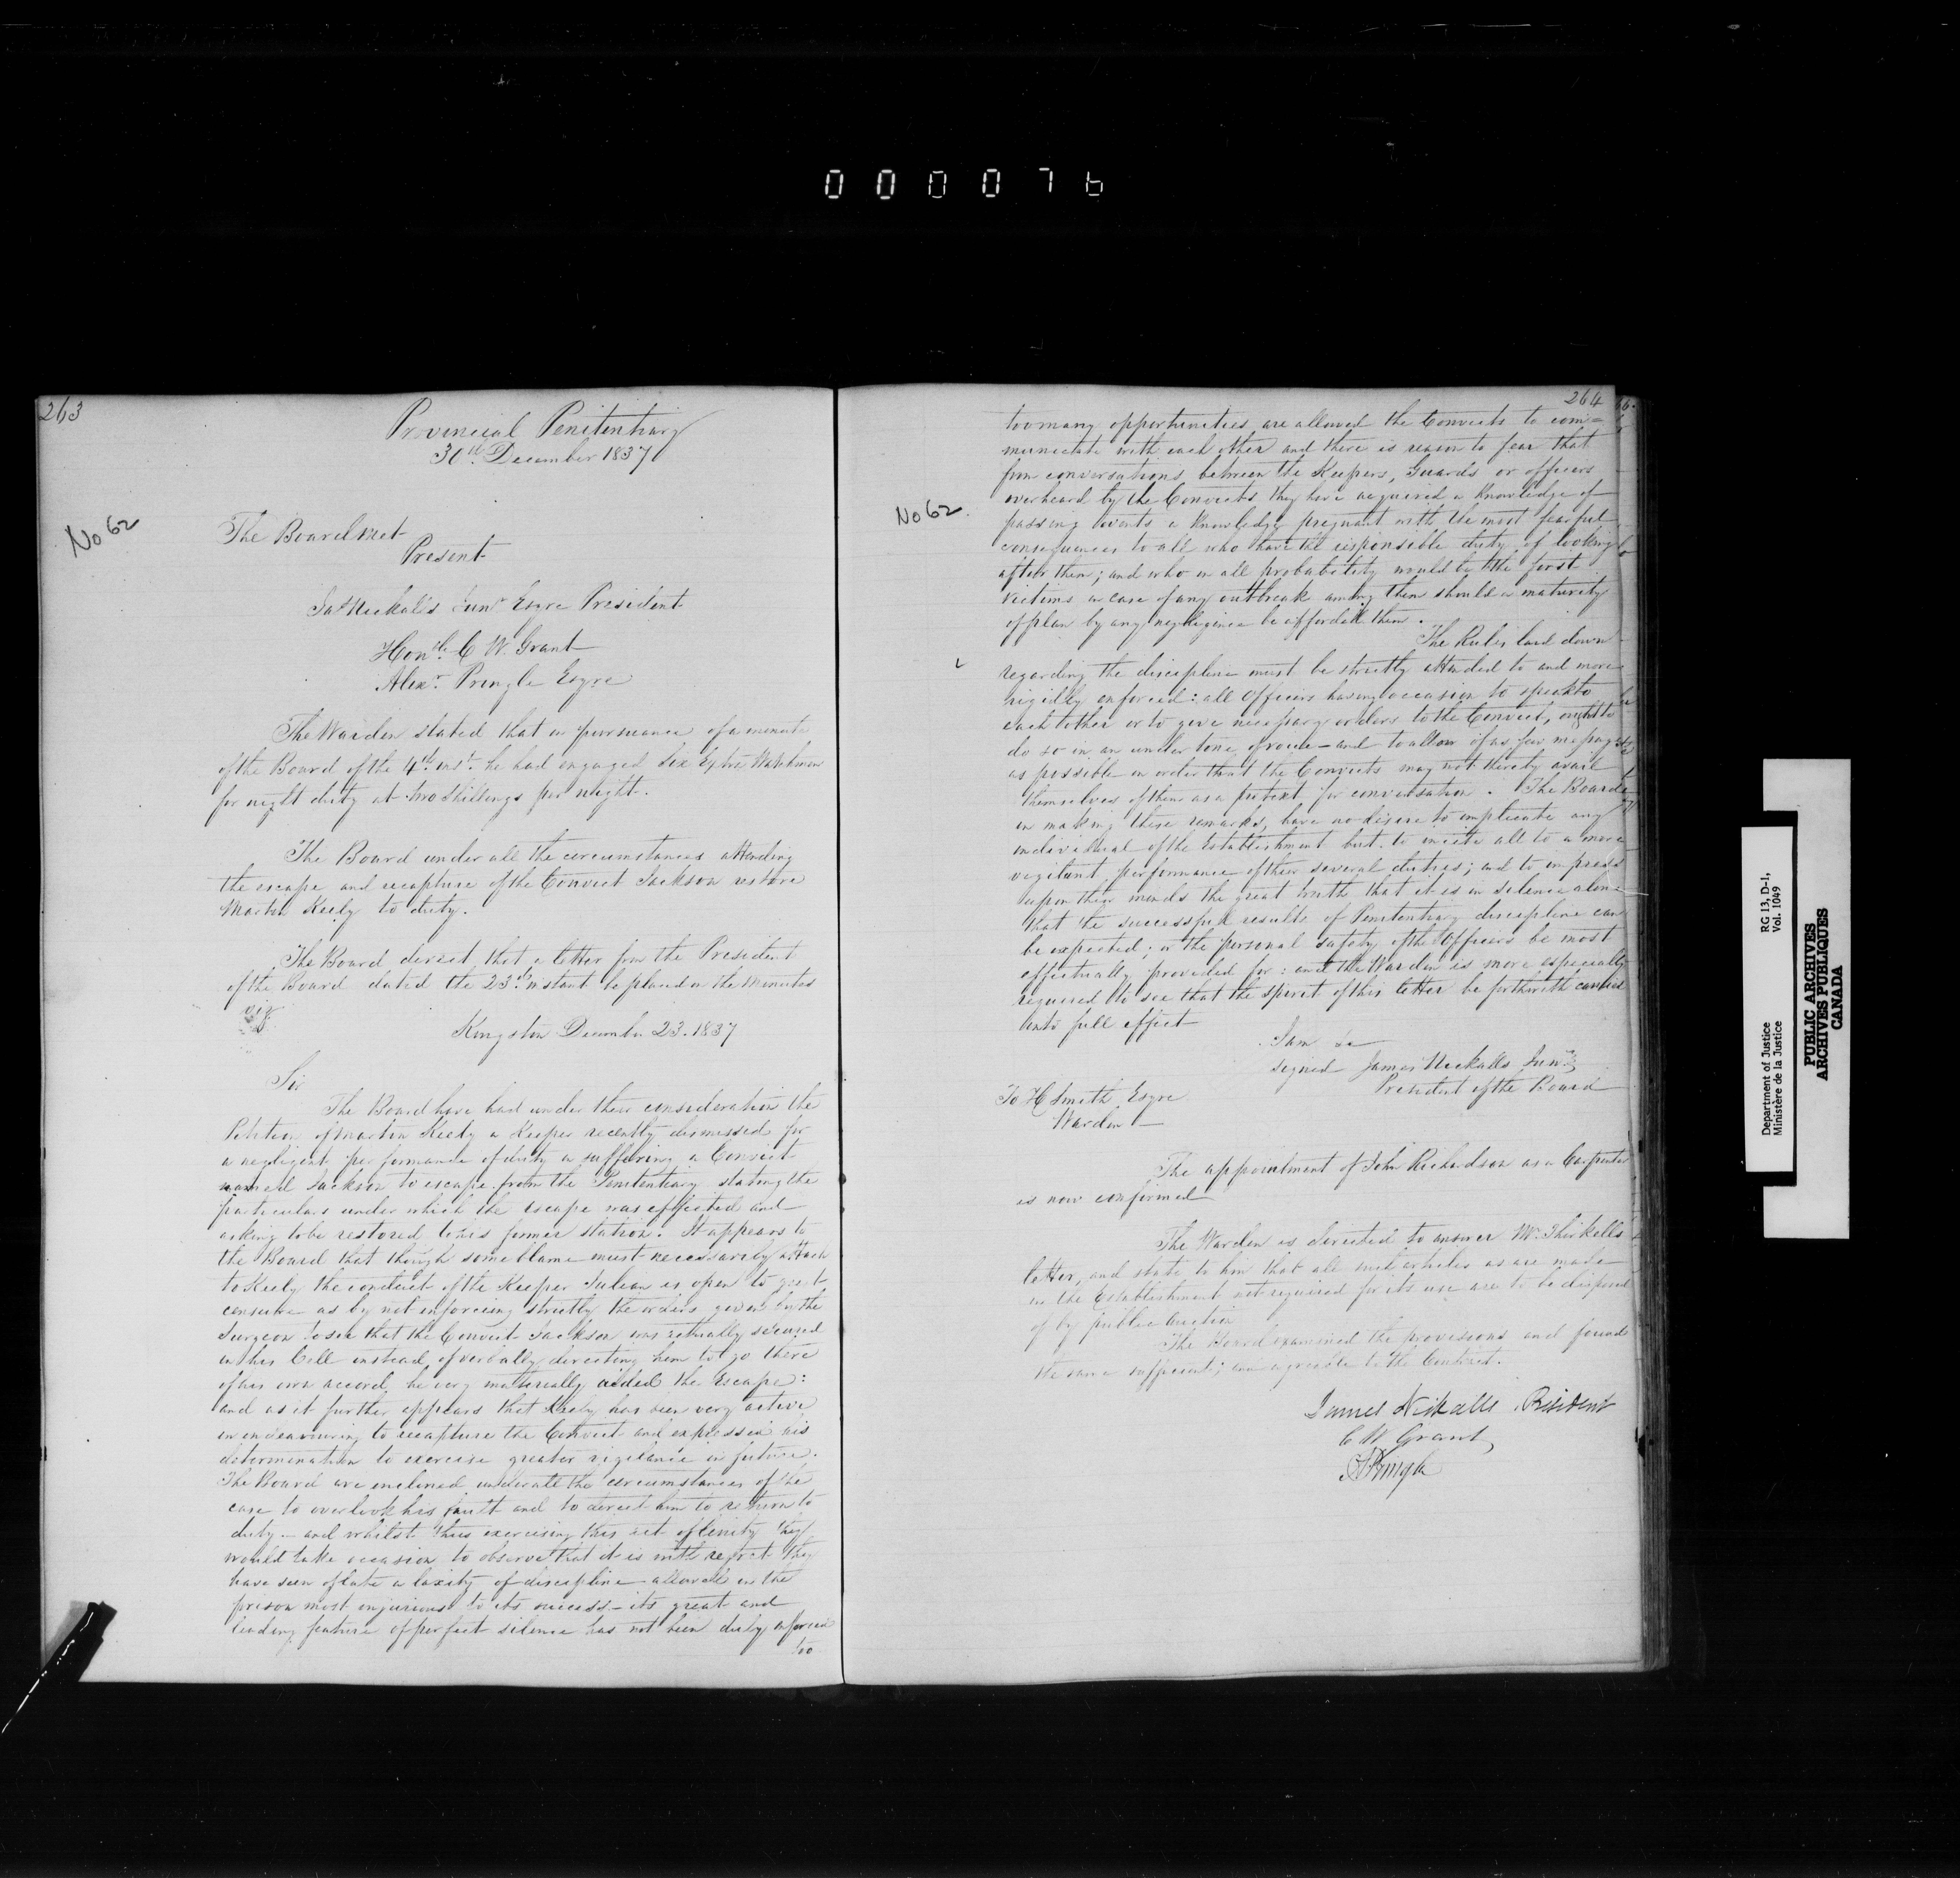 0 0 0 0 7 6
263
Provincial Penitentiary
30th December 1837
No 62
The Board met
Present
Jas Nickalls Junr Esqre President
Honble C W. Grant
Alexr Pringle Esqre
The Warden stated that in pursuance of a minute
of the Board of the 4th inst he had engaged six Extra Watchmen
for night duty at two Shillings per night.
The Board under all the circumstances attending
the escape and recapture of the Convict Jackson restore
Martin Keely to duty.
The Board direct that a letter from the President
of the Board dated the 23d instant be placed on the Minutes
viz
Kingston December 23. 1837
Sir
The Board have had under their consideration the
Petition of Martin Keely a Keeper recently dismissed for
a negligent performance of duty in suffering a Convict
named Jackson to escape from the Penitentiary stating the
particulars under which the escape was effected and
asking to be restored to his former station. It appears to
the Board that though some blame must necessarily attach
to Keely the conduct of the Keeper Julian is open to great
censure as by not enforcing strictly the orders given by the
Surgeon to see that the Convict Jackson was actually secured
in his Cell instead of verbally directing him to go there
of his own accord he very materially aided the Escape:
and as it further appears that Keely has been very active
in endeavouring to recapture the Convict and expresses his
determination to exercise greater vigilance in future.
The Board are inclined under all the circumstances of the
case to overlook his fault and to direct him to return to
duty – and whilst thus exercising this act of lenity they
would take occasion to observe that it is with regret they
have seen of late a laxity of discipline allowed in the
prison most injurious to its success – its great and
leading feature of perfect silence has not been duly enforced
too
264
No 62.
too many opportunities are allowed the Convicts to com=
municate with each other and there is reason to fear that
from conversations between the Keepers, Guards or officers
overheard by the Convicts they have acquired a knowledge of
passing events a knowledge pregnant with the most fearful
consequences to all who have the responsible duty of looking
after them; and who in all probability would be the first
victims in case of any outbreak among them should a maturity
of plan by any negligence be afforded them.
The Rules laid down
regarding the discipline must be strictly attended to and more
rigidly enforced: all Officers having occasion to speak to
each other or to give necessary orders to the Convict, ought to
do so in an under tone of voice – and to allow of as few messages
as possible in order that the Convicts may not thereby avail
themselves of them as a pretext for conversation. The Board
in making these remarks, have no desire to implicate any
individual of the Establishment but to incite all to a more
vigilant performance of their several duties; and to impress
upon their minds the great truth that it is in silence alone
that the successful results of Penitentiary discipline can
be expected; or the personal safety of the Officers be most
effectually provided for: and the Warden is more especially
required to see that the spirit of this letter be forthwith carried
into full effect
I am &c
signed James Nickalls Junr
President of the Board
To H Smith Esqre
Warden –
The appointment of John Richardson as a Carpenter
is now confirmed
The Warden is directed to answer Mr Thirkells
letter, and state to him that all such articles as are made
in the Establishment not required for its use are to be disposed
of by public Auction
The Board examined the provisions and found
the same sufficient; and agreeable to the Contract.
James Nickalls President
C W Grant
A Pringle
Department of Justice RG 13, D-1,
Ministère de la Justice Vol. 1049
PUBLIC ARCHIVES
ARCHIVES PUBLIQUES
CANADA